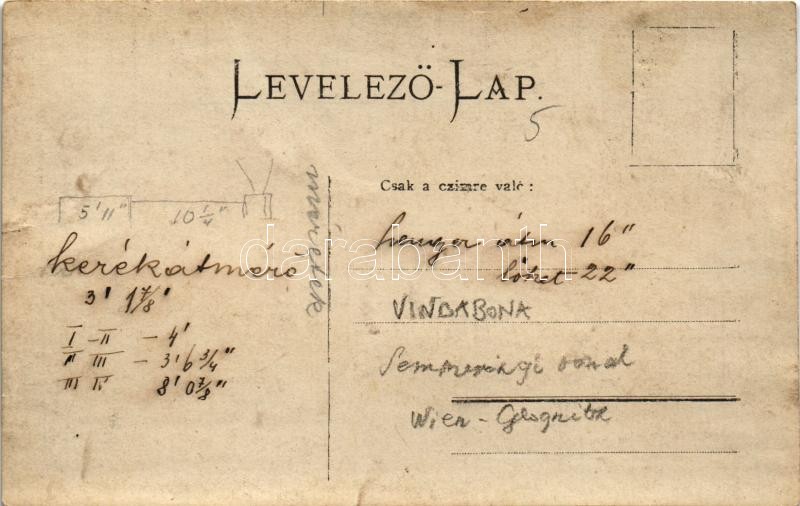 LEVELEZŐ-LAP.
5
Csak a czimre való:
5'11" 10 1/4"
méretek
kerékátmérő
3' 1 7/8"
I-II - 4'
II III - 3' 6 3/4"
III IV 8' 0 7/8"
henger átm 16"
löket 22"
VINDABONA
Semmeringi vonal
Wien - Glognitz
darabanth.com